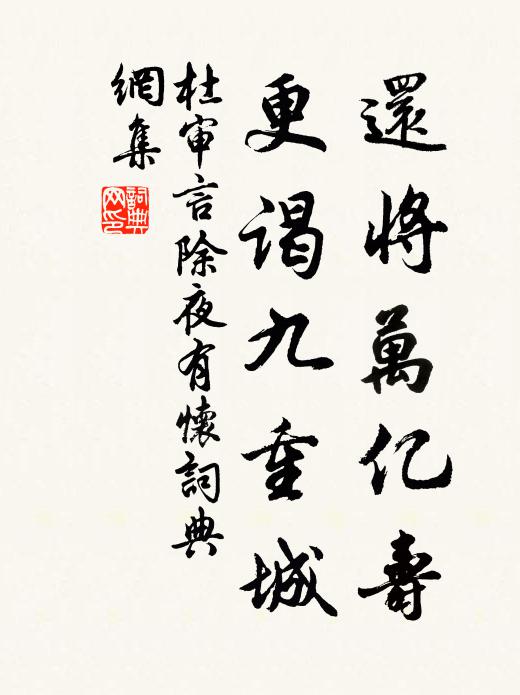 還將萬亿壽
更謁九重城
杜审言除夜有懷詞典
網集
詞典
网印